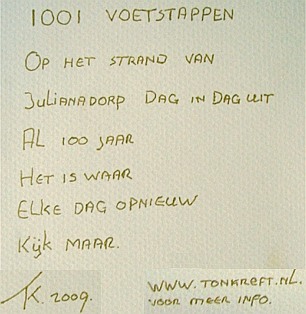 1001 VOETSTAPPEN
OP HET STRAND VAN
JULIANADORP DAG IN DAG UIT
AL 100 JAAR
HET IS WAAR
ELKE DAG OPNIEUW
KIJK MAAR.
TK. 2009.
WWW.TONKREFT.NL.
VOOR MEER INFO.